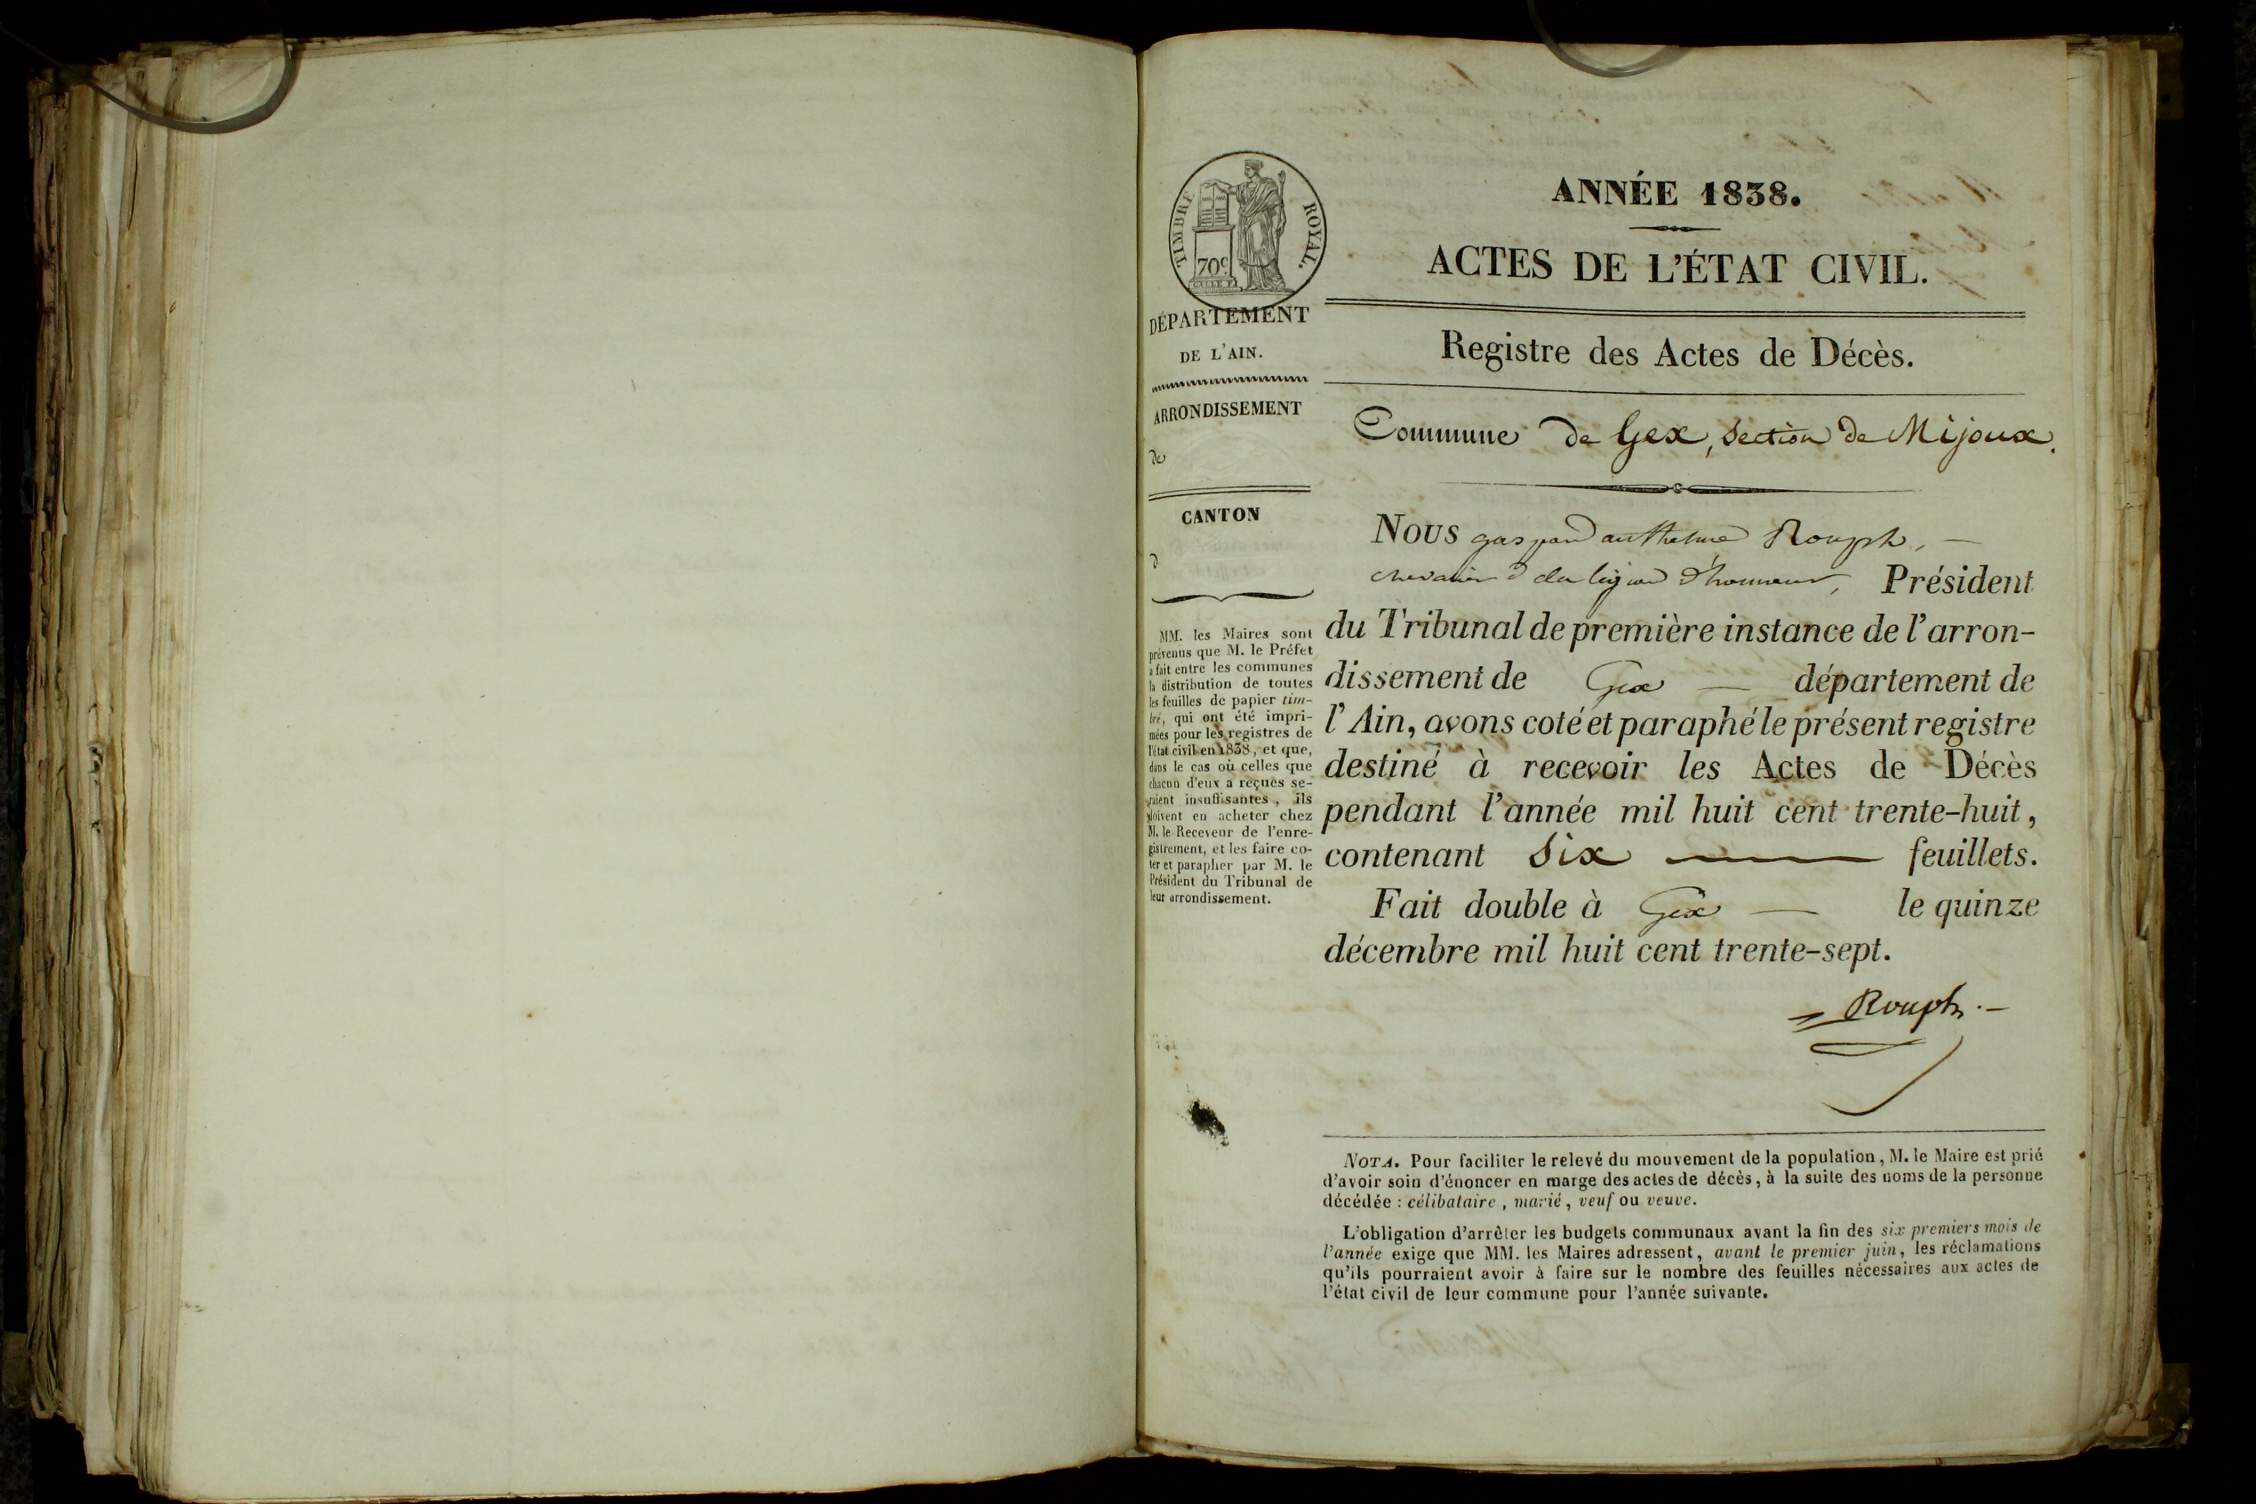 TIMBRE ROYAL.
70c
DÉPARTEMENT
DE L'AIN.
ARRONDISSEMENT
de
CANTON
d
MM. les Maires sont
prévenus que M. le Préfet
a fait entre les communes
la distribution de toutes
les feuilles de papier tim-
bré, qui ont été impri-
mées pour les registres de
l'état civil en 1838, et que,
dans le cas où celles que
chacun d'eux a reçues se-
raient insuffisantes, ils
doivent en acheter chez
M. le Receveur de l'enre-
gistrement, et les faire co-
ter et parapher par M. le
Président du Tribunal de
leur arrondissement.
ANNÉE 1838.
ACTES DE L'ÉTAT CIVIL.
Registre des Actes de Décès.
Commune de Gex, Section de Mijoux.
NOUS gaspard anthelme Rouph, —
chevalier de la légion d'honneur, Président
du Tribunal de première instance de l'arron-
dissement de Gex — département de
l'Ain, avons coté et paraphé le présent registre
destiné à recevoir les Actes de Décès
pendant l'année mil huit cent trente-huit,
contenant Six — feuillets.
Fait double à Gex — le quinze
décembre mil huit cent trente-sept.
Rouph
NOTA. Pour faciliter le relevé du mouvement de la population, M. le Maire est prié
d'avoir soin d'énoncer en marge des actes de décès, à la suite des noms de la personne
décédée : célibataire, marié, veuf ou veuve.
L'obligation d'arrêter les budgets communaux avant la fin des six premiers mois de
l'année exige que MM. les Maires adressent, avant le premier juin, les réclamations
qu'ils pourraient avoir à faire sur le nombre des feuilles nécessaires aux actes de
l'état civil de leur commune pour l'année suivante.